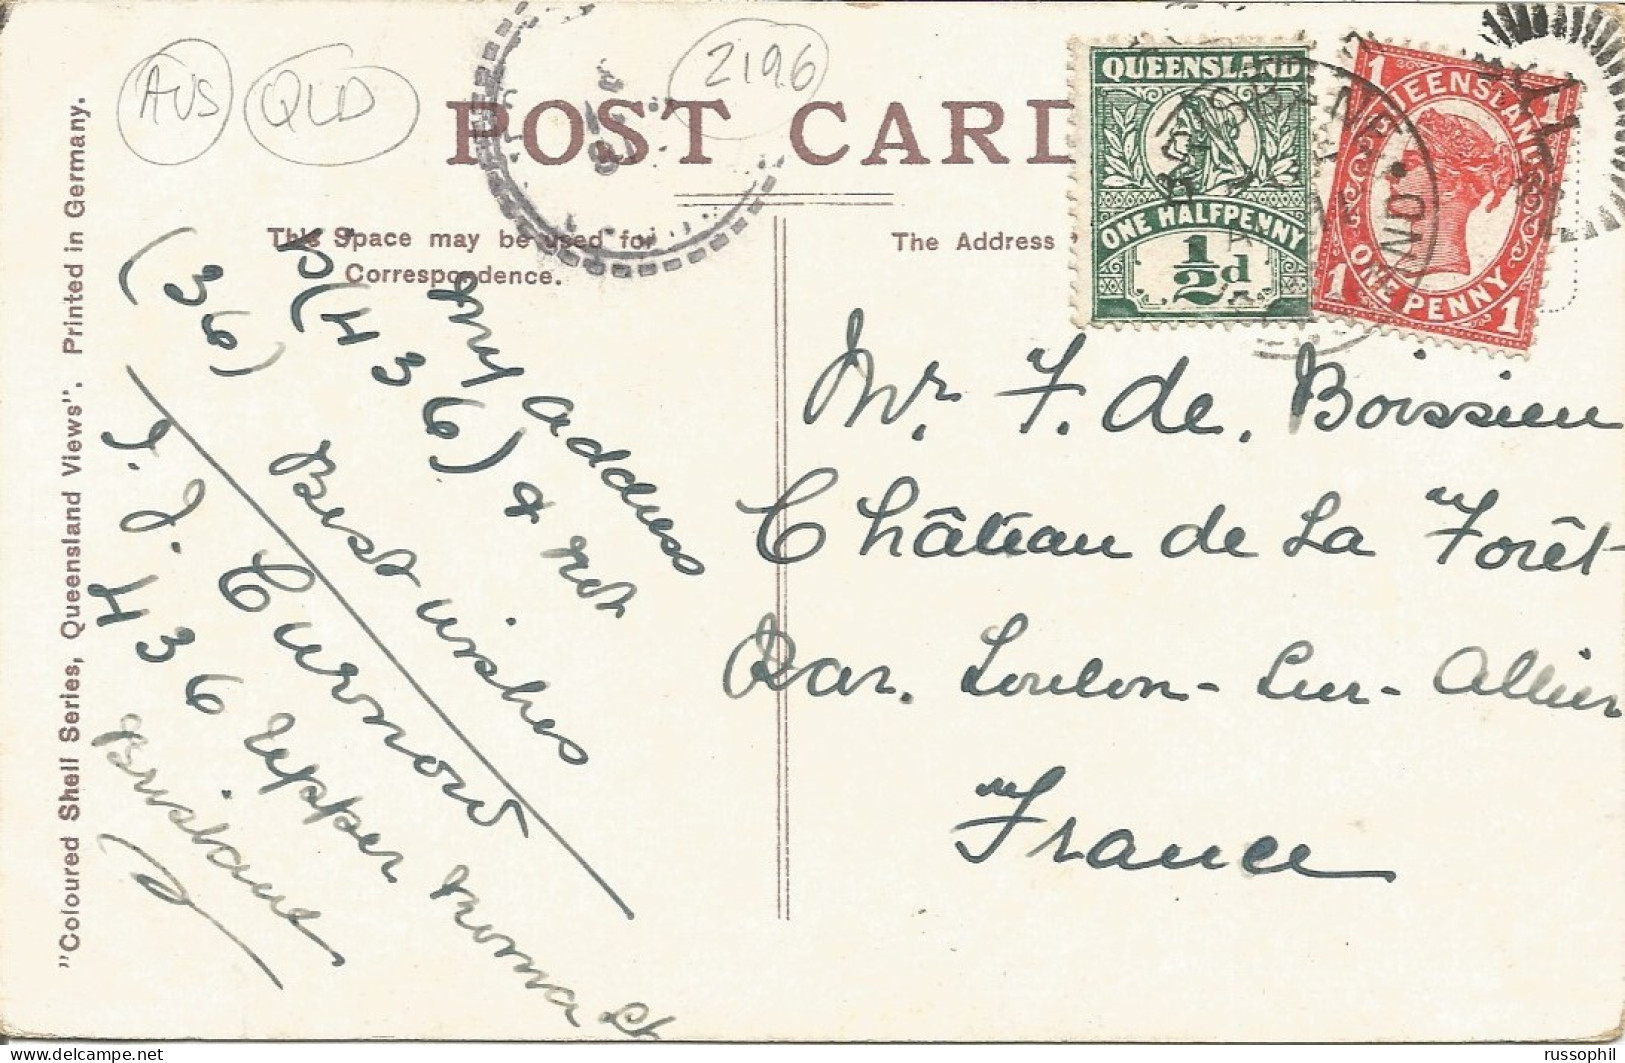 AUS
QLD
2196
POST CARD
This Space may be used for
Correspondence.
The Address
QUEENSLAND
ONE HALFPENNY
½d
QUEENSLAND
ONE PENNY
1 1
1 1
BRISBANE
"Coloured Shell Series, Queensland Views". Printed in Germany.
my address
is (436) & not
(36)
Best wishes
J. J. Curnow
436 Upper Roma St
Brisbane
Mr. F. de. Boissieu
Château de La Forêt
Par. Toulon-sur-Allier
France
russophil